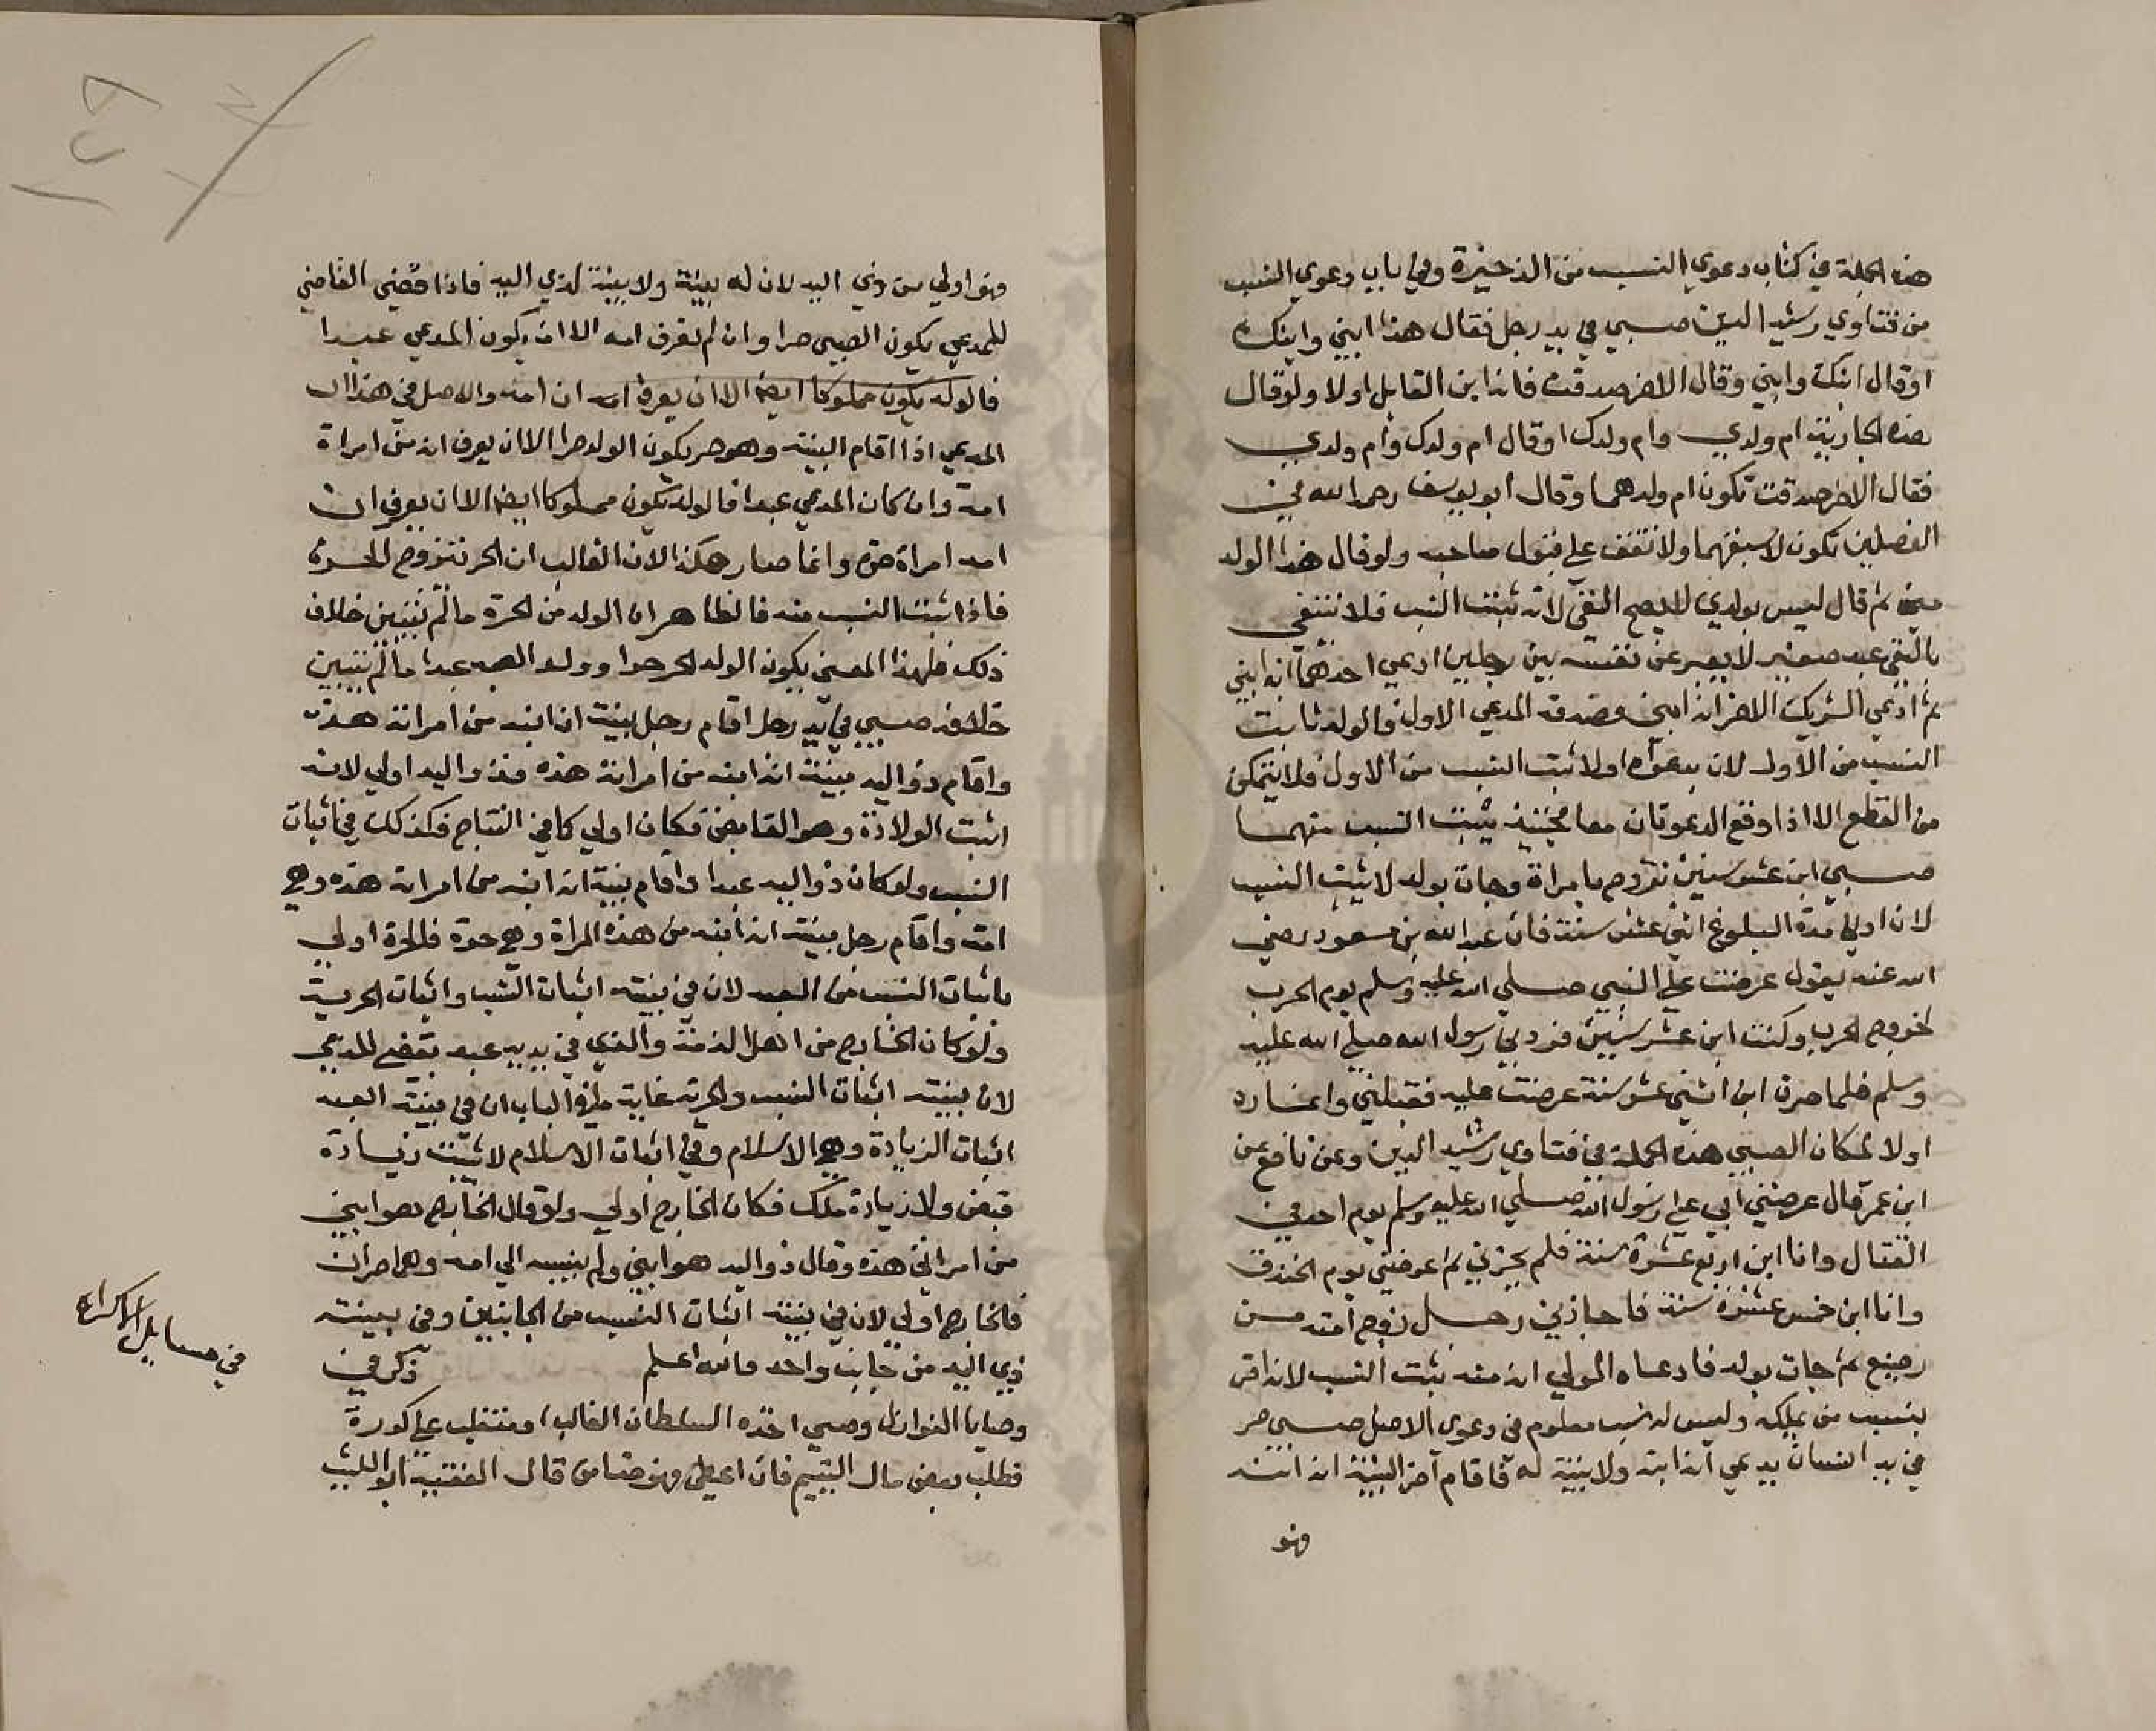 هذه الجملة في كتاب دعوي النسب من الذخيرة وفي باب دعوي النسب
من فتاوي رشيد الدين صبي في يد رجل فقال هذا ابني وابنك
او قال ابنك وابني وقال الاخر صدقت فانه ابن القايل اولا ولو قال
هذه الجارية ام ولدي وام ولدك او قال ام ولدك وام ولدي
فقال الاخر صدقت تكون ام ولدهما وقال ابو يوسف رحمه الله في
الفصلين تكون لاسبقهما ولا تقف علي قبول صاحبه ولو قال هذا الولد
مني ثم قال ليس بولدي لا يصح النفي لانه ثبت النسب فلا ينتفي
بالنفي عبد صغير لا يعبر عن نفسه بين رجلين ادعي احدهما انه ابني
ثم ادعي الشريك الاخر انه ابني وصدقه المدعي الاول فالولد ثابت
النسب من الاول لان بدعواه اولا ثبت النسب من الاول فلا يتمكن
من القطع الا اذا وقع الدعوتان معا فحينئذ يثبت النسب منهما
صبي ابن عشر سنين تزوج بامراة وجات بولد لا يثبت النسب
لان ادني مدة البلوغ اثني عشر سنة فان عبد الله بن مسعود رضي
الله عنه يقول عرضت علي النبي صلي الله عليه وسلم يوم الحرب
لخروج الحرب وكنت ابن عشر سنين فردني رسول الله صلي الله عليه
وسلم فلما صرت ابن اثني عشر سنة عرضت عليه فقبلني وانما رده
اولا لمكان الصبي هذه الجملة في فتاوي رشيد الدين وعن نافع عن
ابن عمر قال عرضني ابي علي رسول الله صلي الله عليه وسلم يوم احد في
القتال وانا ابن اربع عشرة سنة فلم يجزني ثم عرضني يوم الخندق
وانا ابن خمس عشرة سنة فاجازني رجل زوج امته من
رضيع ثم جات بولد فادعاه المولي انه منه يثبت النسب لانه اقر
بنسب من يملكه وليس له نسب معلوم في دعوي الاصل صبي حر
في يد انسان يدعي انه ابنه ولا بينة له فاقام اخر البينة انه ابنه
فهو
فهو اولي من ذي اليد لان له بينة ولا بينة لذي اليد فاذا قضي القاضي
للمدعي يكون الصبي حرا وان لم يعرف امه الا ان يكون المدعي عبدا
فالولد يكون مملوكا ايضا الا ان يعرف امه ان امه والاصل في هذا ان
المدعي اذا اقام البينة وهو حر يكون الولد حرا الا ان يعرف انه من امراة
امة وان كان المدعي عبدا فالولد يكون مملوكا ايضا الا ان يعرف ان
امه امراة حرة وانما صار هكذا لان الغالب ان الحر يتزوج الحرة
فاذا ثبت النسب منه فالظاهر ان الولد من الحرة ما لم يتبين خلاف
ذلك فلهذا المعني يكون الولد الحر حرا وولد العبد عبدا ما لم يتبين
خلافه صبي في يد رجل اقام رجل بينة انه ابنه من امراته هذه
واقام ذو اليد بينة انه ابنه من امراته هذه فذو اليد اولي لانه
اثبت الولادة وهو القابض فكان اولي كما في النتاج فكذلك في اثبات
النسب ولو كان ذو اليد عبدا واقام بينة انه ابنه من امراته هذه وهي
امة واقام رجل بينة انه ابنه من هذه المراة وهي حرة فالحرة اولي
باثبات النسب من العبد لان في بينته اثبات النسب واثبات الحرية
ولو كان الخارج من اهل الذمة والذي في يديه عبد يقضي للمدعي
لان ببينته اثبات النسب والحرية غاية ما في الباب ان في بينة العبد
اثبات الزيادة وهي الاسلام وفي اثبات الاسلام لا يثبت زيادة
قبض ولا زيادة ملك فكان الخارج اولي ولو قال الخارج هو ابني
من امراتي هذه وقال ذو اليد هو ابني ولم ينسبه الي امه وهما حران
فالخارج اولي لان في بينته اثبات النسب من الجانبين وفي بينته
ذي اليد من جانب واحد والله اعلم ذكر في
وصايا النوازل وصي اخذه السلطان الغالب او متغلب علي كورة
فطلب بعض مال اليتيم فان اعطي فهو ضامن قال الفقيه ابو الليث
في مسايل الاكراه